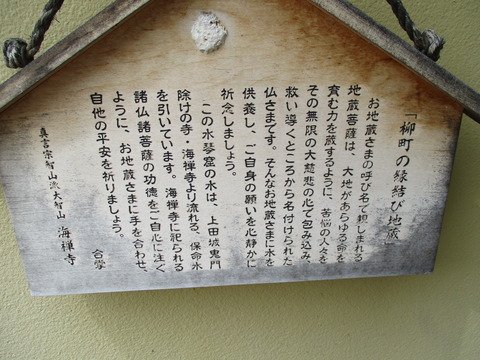 「柳町の縁結び地蔵」
お地蔵さまの呼び名で親しまれる
地蔵菩薩は、大地があらゆる命を
育む力を蔵するように、苦悩の人々を
その無限の大慈悲の心で包み込み、
救い導くところから名付けられた
仏さまです。そんなお地蔵さまに水を
供養し、ご自身の願いを心静かに
祈念しましょう。
この水琴窟の水は、上田城鬼門
除けの寺・海禅寺より流れる、保命水
を引いています。海禅寺に祀られる
諸仏諸菩薩の功徳をご自心に注ぐ
ように、お地蔵さまに手を合わせ、
自他の平安を祈りましょう。
合掌
真言宗智山派大智山 海禅寺